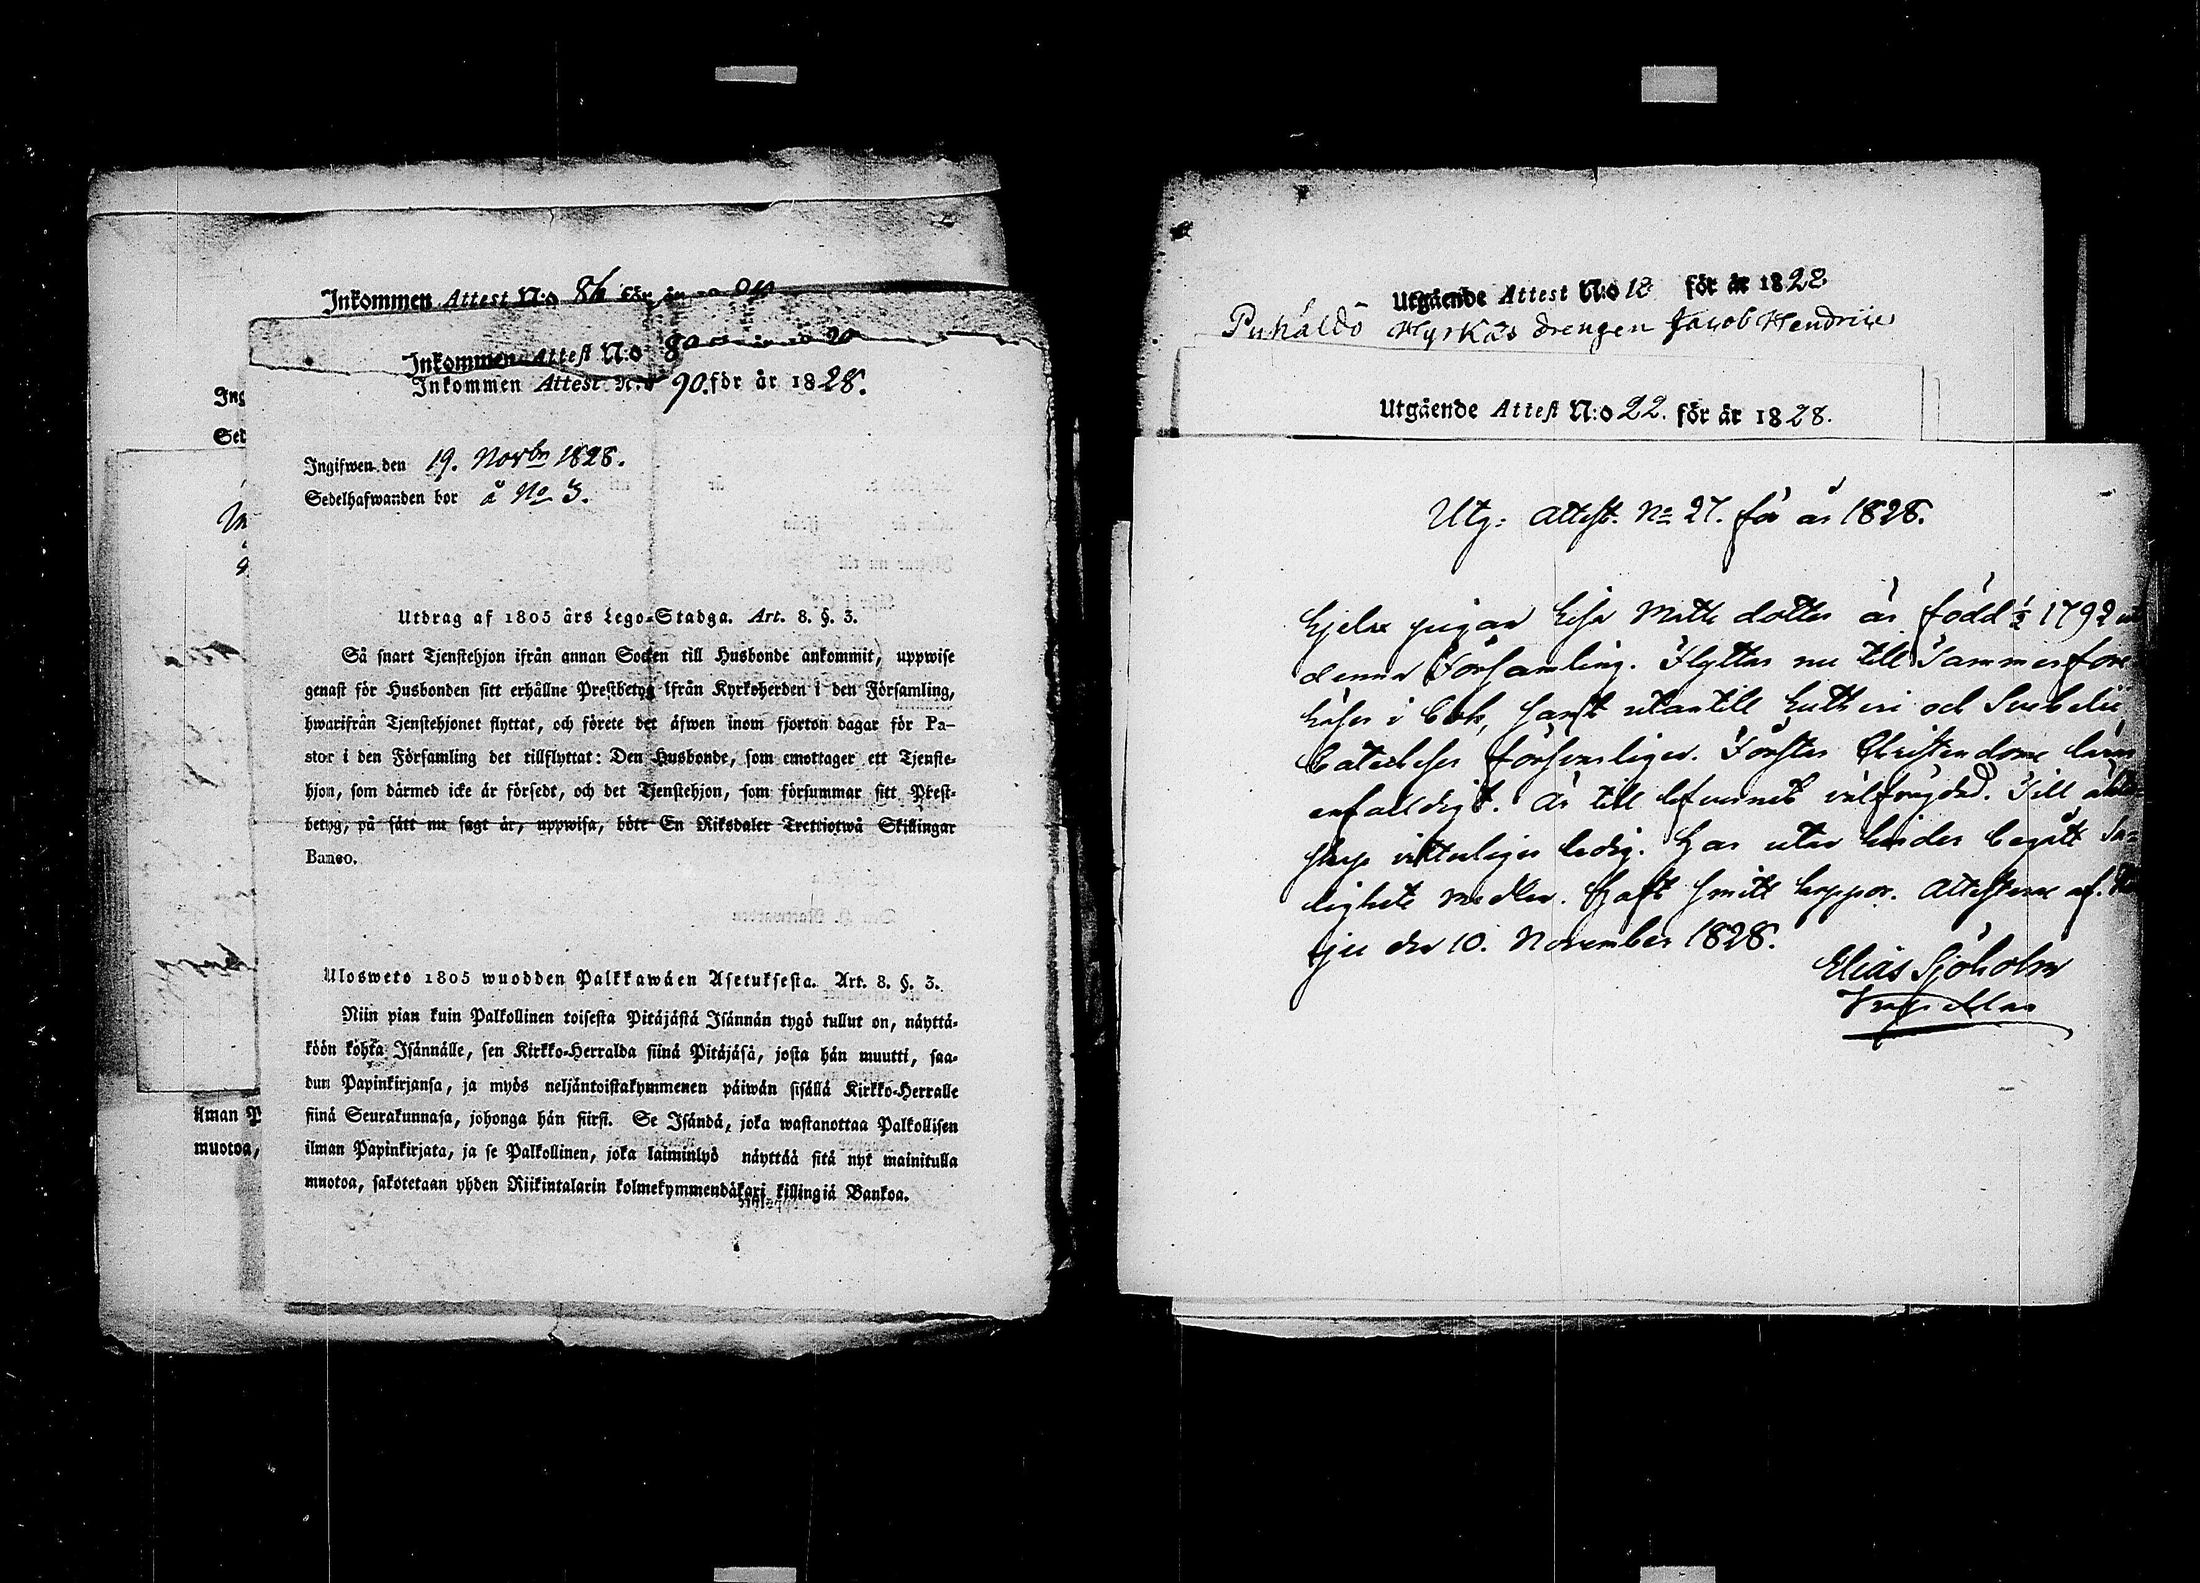 Inkommen Attest N:o 86 för år
Inkommen Attest N:o
Inkommen Attest N:o 90. för år 1828.
Ingifwen den 19. Novbr 1828.
Sedelhafwanden bor å No 3.
Utdrag af 1805 års Lego-Stadga. Art. 8. §. 3.
Så snart Tjenstehjon ifrån annan Socken till Husbonde ankommit, uppwise
genast för Husbonden sitt erhållne Prestbetyg ifrån Kyrkoherden i den Församling,
hwarifrån Tjenstehjonet flyttat, och förete det äfwen inom fjorton dagar för Pa-
stor i den Församling det tillflyttat: Den Husbonde, som emottager ett Tjenste-
hjon, som därmed icke är försedt, och det Tjenstehjon, som försummar sitt Prest-
betyg, på sätt nu sagt är, uppwisa, böte En Riksdaler Trettiotwå Skillingar
Banco.
Ulosweto 1805 wuodden Palkkawäen Asetuksesta. Art. 8. §. 3.
Niin pian kuin Palkollinen toisesta Pitäjästä Isännän tygö tullut on, näyttä-
köön kohta Isännälle, sen Kirkko-Herralda siinä Pitäjäsä, josta hän muutti, saa-
dun Papinkirjansa, ja myös neljäntoistakymmenen päiwän sisällä Kirkko-Herralle
siinä Seurakunnasa, johonga hän siirsi. Se Isändä, joka wastanottaa Palkollisen
ilman Papinkirjata, ja se Palkollinen, joka laiminlyö näyttää sitä nyt mainitulla
muotoa, sakotetaan yhden Riikintalarin kolmekymmendäkaxi killingiä Bankoa.
Ing
Sed
ilman P
muotoa,
Utgående Attest N:o 18 för år 1828
Puhaldo Myrkäs drengen Jacob Hendrics
Utgående Attest N:o 22. för år 1828.
Utg: Attest. No 27. för år 1828.
Hjelse pigan Lisa Matts dotter är född 1792
denna Församling. Flyttar nu till Tammerfors
Läser i bok, samt utantill Lutheri och Svebelii
Catecheser försvarligen. Förstår Christendoms läran
enfaldigt. Är till lefvernet välfrägdad. Till äkten
skap vitterligen ledig. Har utan hinder begått Sa-
lighets medlen. Haft smitt koppor. Attesterar af
ju den 10. November 1828.
Elias Sjöholm